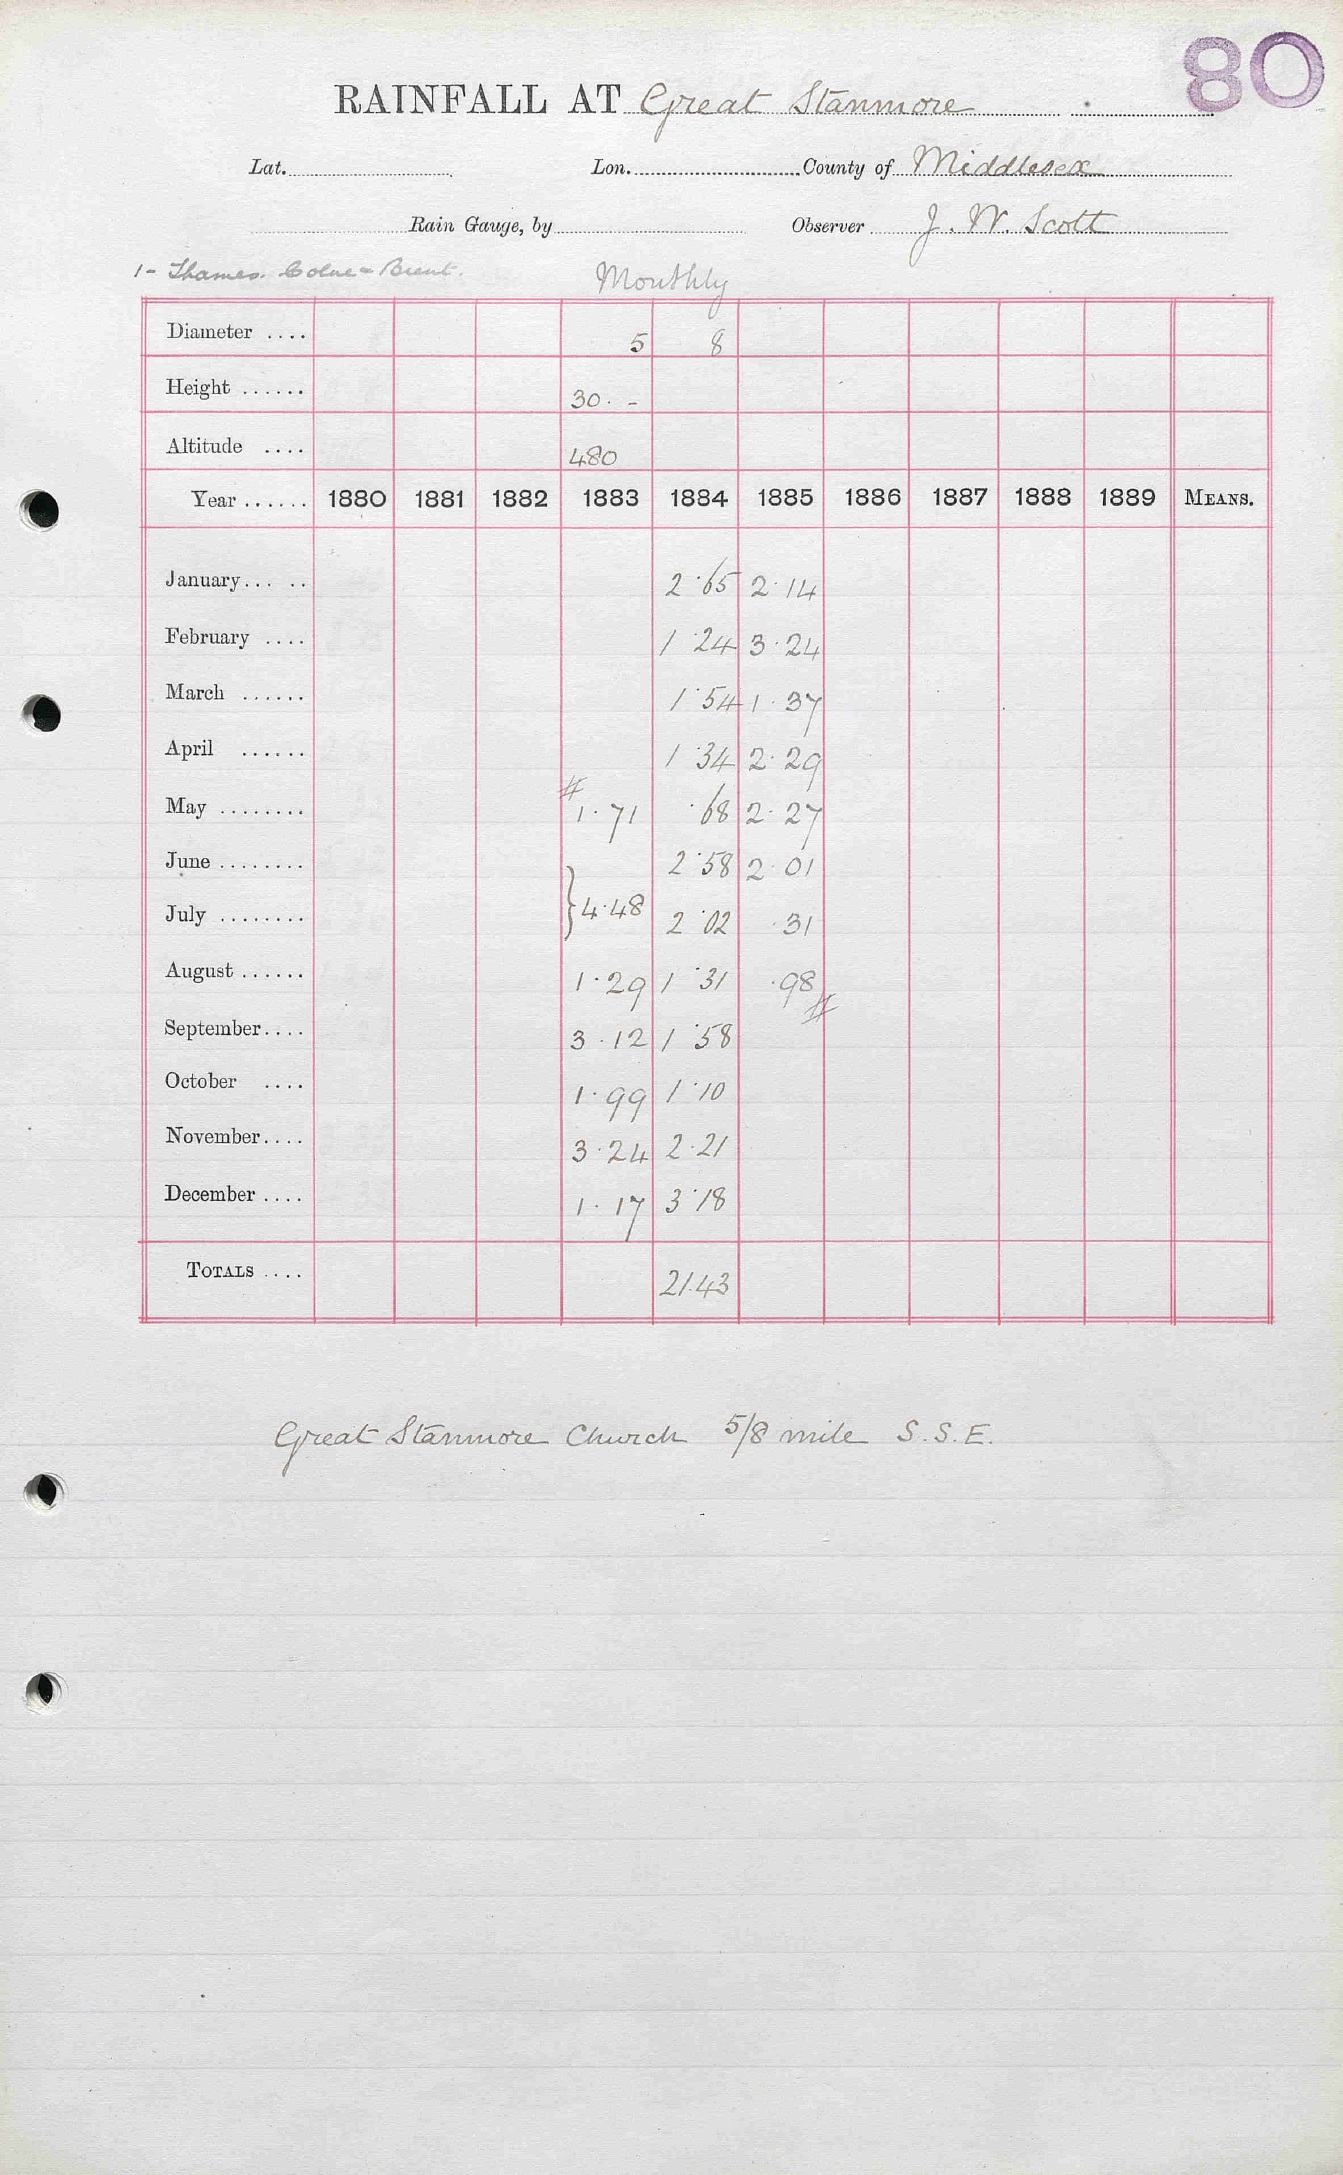 80
RAINFALL AT Great Stanmore
Lat. Lon. County of Middlesex
Rain Gauge, by Observer J. W. Scott
1- Thames. Colne - Brent. Monthly
Diameter .... 5 8
Height ...... 30. -
Altitude .... 480
Year ...... 1880 1881 1882 1883 1884 1885 1886 1887 1888 1889 MEANS.
January... .. 2.65 2.14
February .... 1.24 3.24
March ...... 1.54 1.37
April ...... 1.34 2.29
May ........ #1.71 .68 2.27
June ........ 2.58 2.01
July ........ }4.48 2.02 .31
August ...... 1.29 1.31 .98 #
September.... 3.12 1.58
October .... 1.99 1.10
November.... 3.24 2.21
December .... 1.17 3.18
TOTALS .... 21.43
Great Stanmore Church 5/8 mile S.S.E.